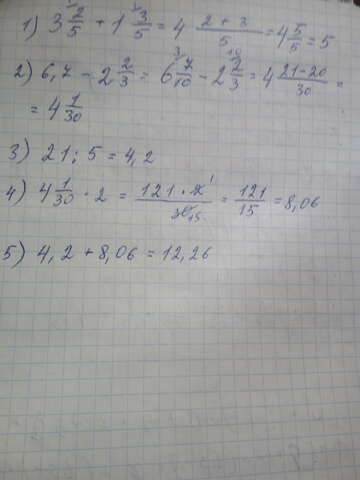 1) 3 2/5 + 1 3/5 = 4 (2 + 3)/5 = 4 5/5 = 5
2) 6,7 - 2 2/3 = 6 7/10 - 2 2/3 = 4 (21 - 20)/30 =
= 4 1/30
3) 21 : 5 = 4,2
4) 4 1/30 · 2 = (121 · 2)/30 = 121/15 = 8,06
5) 4,2 + 8,06 = 12,26